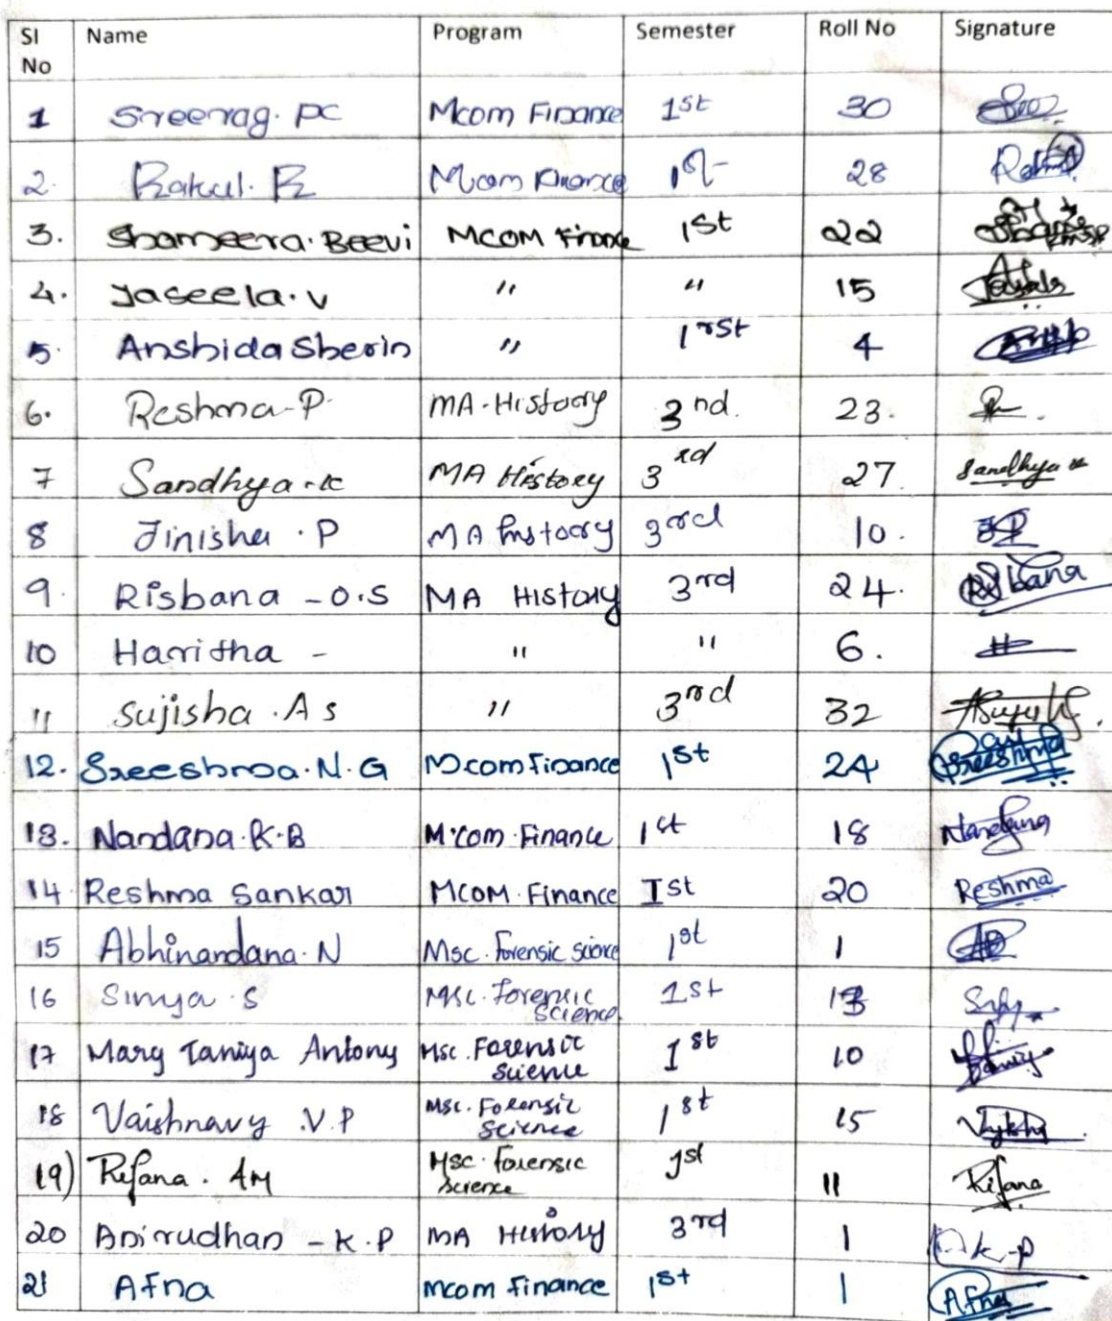 Sl No Name Program Semester Roll No Signature
1 Sreerag. PC Mcom Finance 1st 30
2. Rakul. R Mcom Finance 1st 28
3. Shameera. Beevi MCOM Finance 1st 22
4. Jaseela. V " " 15
5. Anshida Sherin " 1rst 4
6. Reshma-P. MA-History 3nd. 23.
7 Sandhya. K MA History 3rd 27 Sandhya K
8 Jinisha. P MA history 3rd 10. JP
9. Risbana - O.S MA History 3rd 24. Risbana
10 Haritha - " " 6. H
11 Sujisha. A s " 3rd 32
12. Sreeshma. N. G Mcom finance 1st 24 Sreeshma
13. Nandana. K. B M.com. Finance 1st 18 Nandana
14 Reshma Sankar MCOM. Finance Ist 20 Reshma
15 Abhinandana. N Msc. Forensic science 1st 1
16 Sinya. S Msc. Forensic Science 1st 13
17 Mary Taniya Antony Msc. Forensic Science 1st 10
18 Vaishnavy .V.P Msc. Forensic Science 1st 15
19) Rifana. AM Msc. Forensic Science 1st 11 Rifana
20 Anirudhan - K.P MA History 3rd 1 A k-p
21 Afna Mcom finance 1st 1 Afna